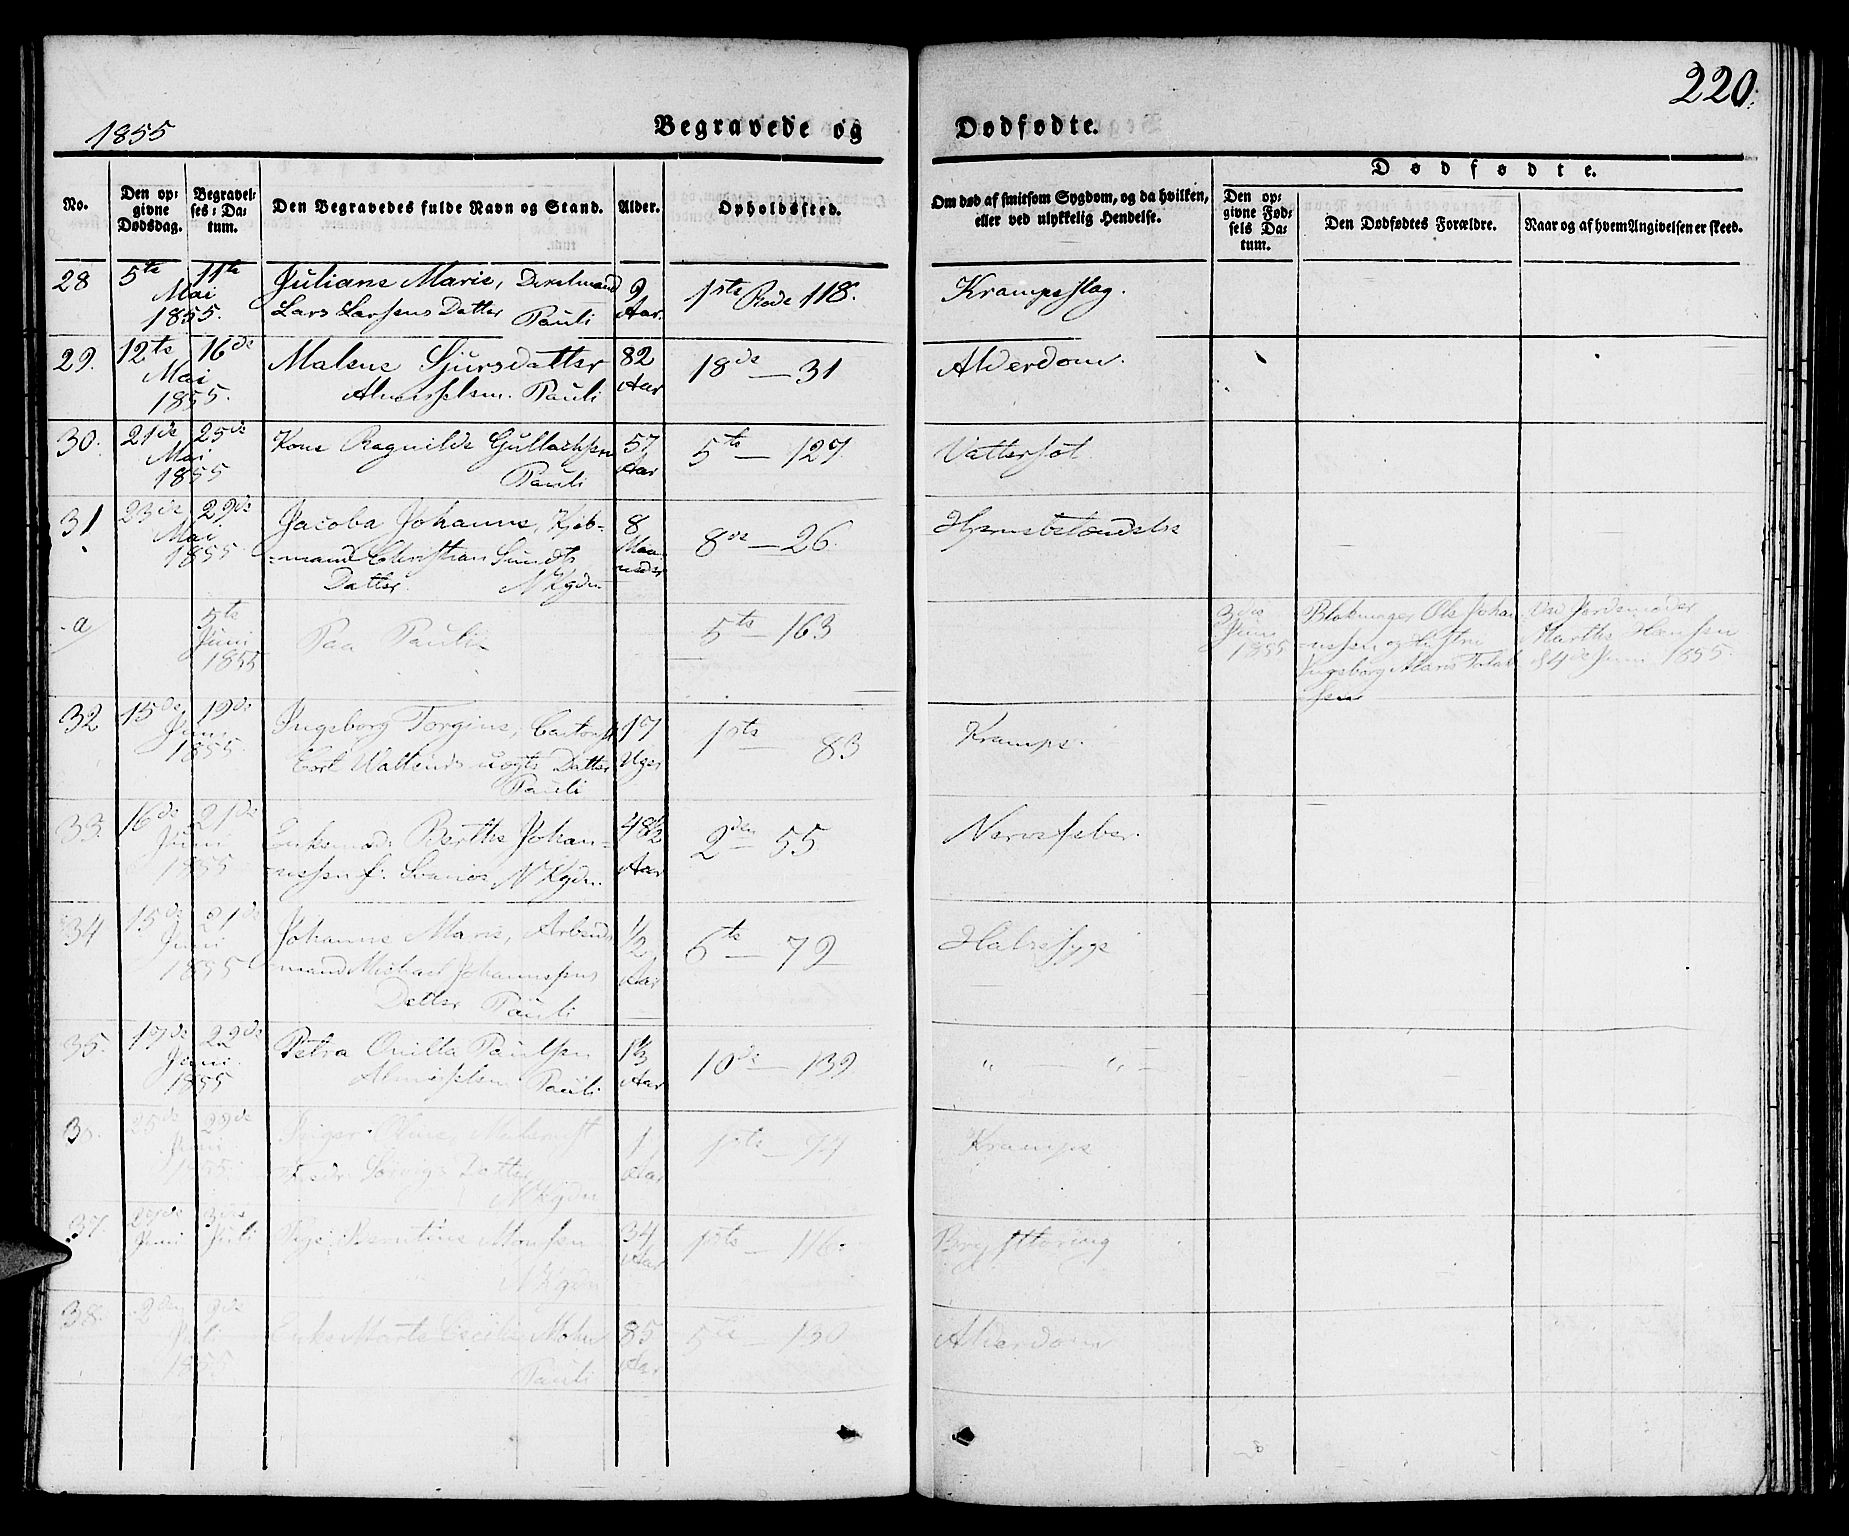 220.
1855
Begravede og Dødfødte.
No.
Den op-
givne
Dødsdag.
Begravel-
ses-Da-
tum.
Den Begravedes fulde Navn og Stand.
Alder.
Opholdssted.
Om død af smitsom Sygdom, og da hvilken,
eller ved ulykkelig Hendelse.
Dødfødte.
Den op-
givne Fød-
sels Da-
tum.
Den Dødfødtes Forældre.
Naar og af hvem Angivelsen er skeed.
28 5te 11te Juliane Marie, 9 1ste Rode 118. Krampeslag.
Mai
1855. Lars Larsens Datter Pauli Aar.
29. 12te 16de Malene Sjursdatter 82 18de — 31 Alderdom.
Mai
1855. Almisselem. Pauli Aar
30. 21de 25de Kone Ragnilde Gullachsen 57 5te — 127 Vattersot.
Mai
1855 Pauli Aar
31 23de 29de Jacoba Johanne, Kjøb- 8 8de — 26. Hjernebetændelse
Mai
1855. -mand Christian Sundts Maa-
Datter. N Kgdm neder
a 5te Paa Pauli 5te — 163 3die Ole Johan- Ved Jordemoder
Juni Juni -nessen og Hustru Marthe Hansen
1855 1855 Ingeborg Marie 4de Juni 1855.
32 15de 19de Ingeborg Torgine, 17 1ste — 83 Krampe.
Juni
1855. Datter Uger
Pauli
33 16de 21de Enkemad. Berthe Johan- 48½ 2den — 55 Nervefeber.
Juni
1855 -nessen f. N Kgdm Aar
34 15de 21de Johanne Marie, Arbeids- ½ 6te — 79 Halssyge
Juni
1855 mand Michael Johannessens Aar
Datter Pauli
35. 17de 22de Petra Paulsen 1⅓ 10de — 139 „ — „ —
Juni
1855 Almisselem Pauli Aar
25de 29de Oline, 1 1ste — Krampe
Juni
1855. Datter Aar
N Kgdm
37. 27de 3die Berntine Monsen 34 1ste — 116. Brystting
Juni Juli Aar
N Kgdm
38. 2den 9de Enke Marte Cecilie Mohn 85 5te — 130 Alderdom
Juli
1855 Pauli Aar